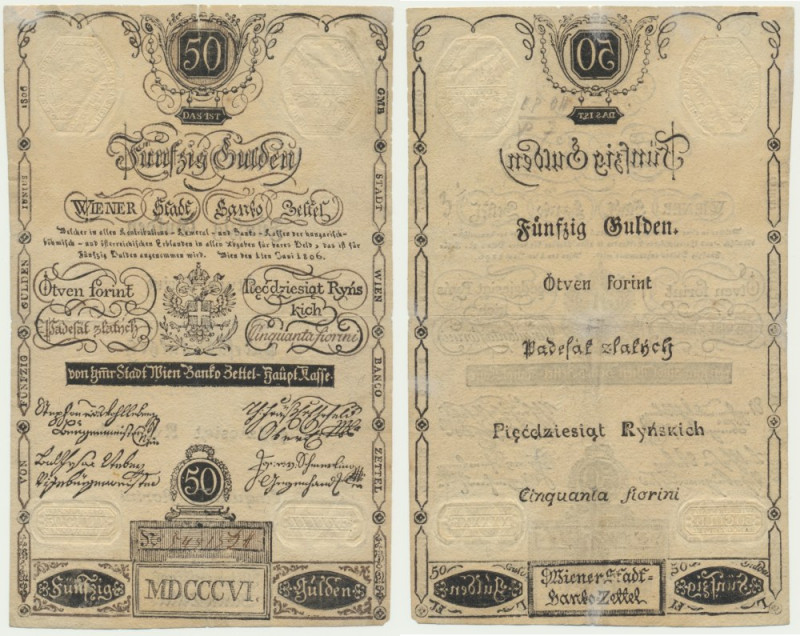 50
DAS IST
Fünfzig Gulden
WIENER Stadt Banko Zettel
Welcher in allen Kontributions- Kameral- und Banko- Kassen der hungarisch-
böhmisch- und österreichischen Erblanden in allen Abgaben für bares Geld, das ist für
Fünfzig Gulden angenommen wird. Wien den 1ten Juni 1806.
Ötven forint
Pięćdziesiąt Ryńs
kich
Padesát zlatých
Cinquanta fiorini
von der Stadt Wien Banko Zettel-Haupt Kasse.
50
MDCCCVI.
Fünfzig
Gulden
1806
IUNIUS
GULDEN
FÜNFZIG
VON
GMB
STADT
WIEN
BANCO
ZETTEL
50
DAS IST
Fünfzig Gulden
Fünfzig Gulden.
Ötven forint
Padesát zlatých
Pięćdziesiąt Ryńskich
Cinquanta fiorini
50 Guld
Gulden
Fl L
Wiener Stadt-
Banko-Zettel
50 Guld
Fünfzig
Fl L